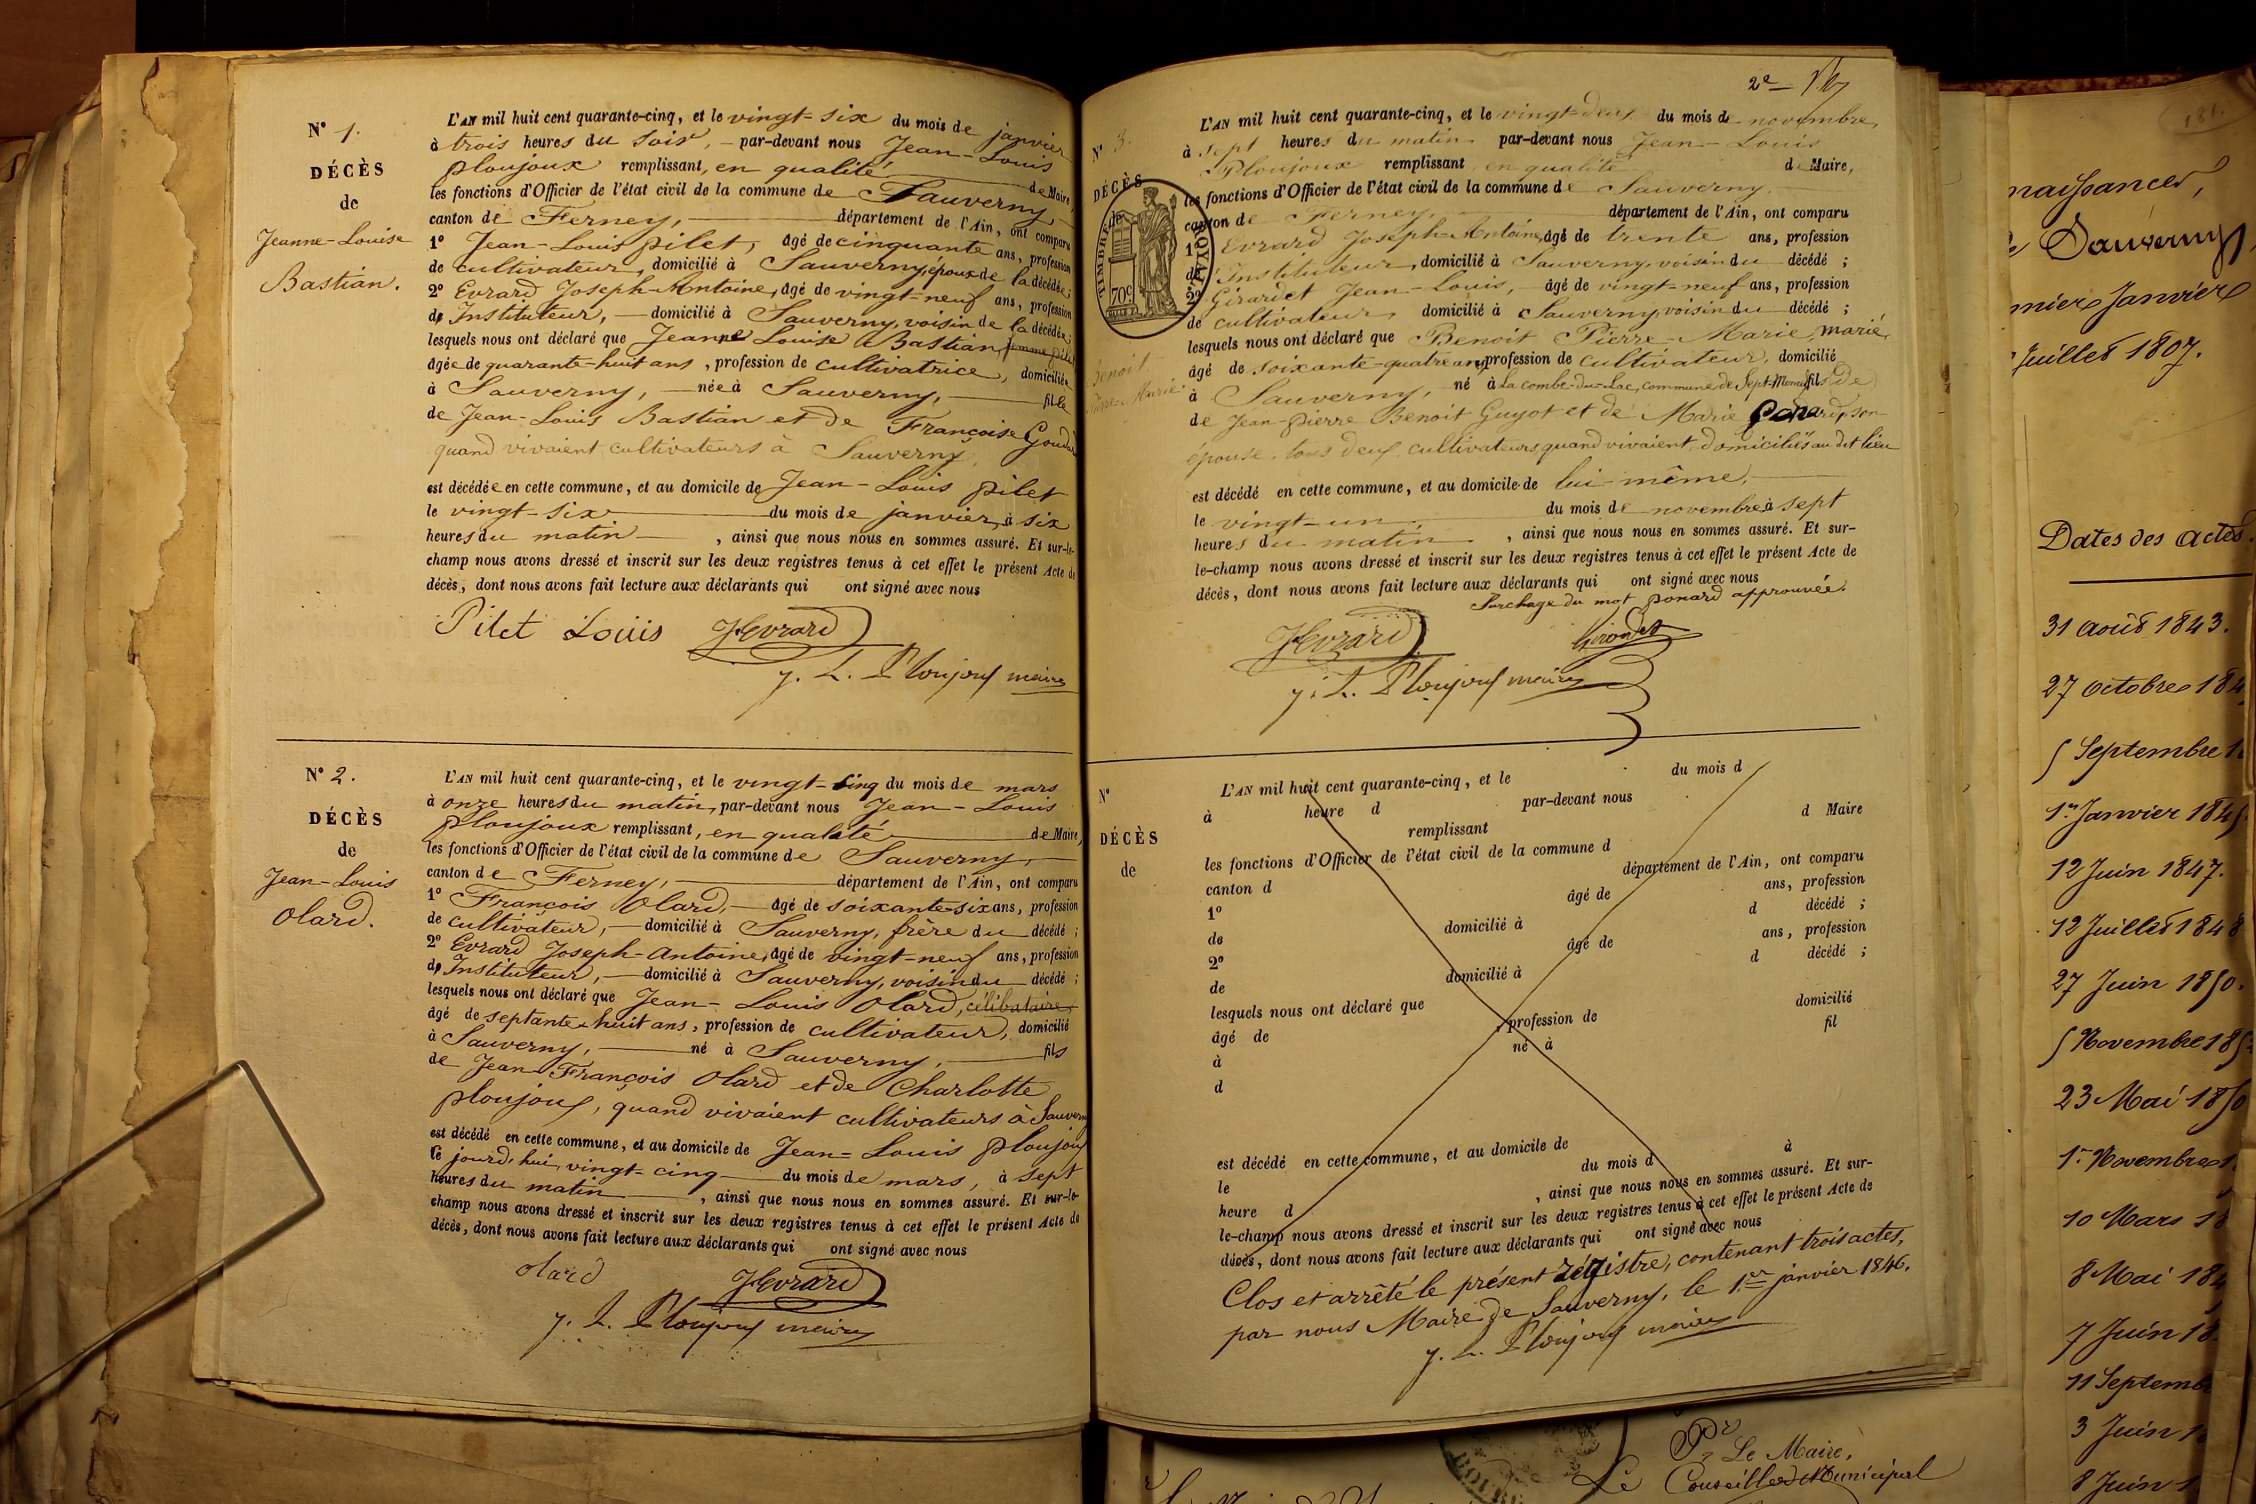 N° 1.
DÉCÈS
de
Jeanne-Louise
Bastian.
L'AN mil huit cent quarante-cinq, et le vingt-six du mois de janvier
à trois heures du soir, par-devant nous Jean-Louis
Ploujoux remplissant, en qualité de Maire,
les fonctions d'Officier de l'état civil de la commune de Sauverny,
canton de Ferney, département de l'Ain, ont comparu
1° Jean-Louis Pilet, âgé de cinquante ans, profession
de cultivateur, domicilié à Sauverny, époux de la décédée;
2° Evrard Joseph-Antoine, âgé de vingt-neuf ans, profession
de Instituteur, domicilié à Sauverny, voisin de la décédée;
lesquels nous ont déclaré que Jeanne Louise Bastian, femme
âgée de quarante-huit ans, profession de cultivatrice, domiciliée
à Sauverny, née à Sauverny, fille
de Jean-Louis Bastian et de Françoise
quand vivaient cultivateurs à Sauverny,
est décédée en cette commune, et au domicile de Jean-Louis Pilet
le vingt-six du mois de janvier, à six
heures du matin, ainsi que nous nous en sommes assuré. Et sur-le-
champ nous avons dressé et inscrit sur les deux registres tenus à cet effet le présent Acte de
décès, dont nous avons fait lecture aux déclarants qui ont signé avec nous
Pilet Louis JEvrard
J. L. Ploujoux maire
N° 2.
DÉCÈS
de
Jean-Louis
Olard.
L'AN mil huit cent quarante-cinq, et le vingt-cinq du mois de mars
à onze heures du matin, par-devant nous Jean-Louis
Ploujoux remplissant, en qualité de Maire,
les fonctions d'Officier de l'état civil de la commune de Sauverny,
canton de Ferney, département de l'Ain, ont comparu
1° François Olard, âgé de soixante-six ans, profession
de cultivateur, domicilié à Sauverny, frère du décédé;
2° Evrard Joseph-Antoine, âgé de vingt-neuf ans, profession
de Instituteur, domicilié à Sauverny, voisin du décédé;
lesquels nous ont déclaré que Jean-Louis Olard, célibataire
âgé de septante-huit ans, profession de cultivateur, domicilié
à Sauverny, né à Sauverny, fils
de Jean François Olard et de Charlotte
Ploujoux, quand vivaient cultivateurs à Sauverny
est décédé en cette commune, et au domicile de Jean-Louis Ploujoux
le jourd'hui vingt-cinq du mois de mars, à sept
heures du matin, ainsi que nous nous en sommes assuré. Et sur-le-
champ nous avons dressé et inscrit sur les deux registres tenus à cet effet le présent Acte de
décès, dont nous avons fait lecture aux déclarants qui ont signé avec nous
Olard JEvrard
J. L. Ploujoux maire
2e
N° 3.
DÉCÈS
TIMBRE ROYAL
70c
Benoit
Pierre-Marie
L'AN mil huit cent quarante-cinq, et le vingt-deux du mois de novembre,
à sept heures du matin par-devant nous Jean-Louis
Ploujoux remplissant en qualité de Maire,
les fonctions d'Officier de l'état civil de la commune de Sauverny,
canton de Ferney, département de l'Ain, ont comparu
1° Evrard Joseph-Antoine, âgé de trente ans, profession
de Instituteur, domicilié à Sauverny, voisin du décédé;
2° Girardet Jean-Louis, âgé de vingt-neuf ans, profession
de cultivateur, domicilié à Sauverny, voisin du décédé;
lesquels nous ont déclaré que Benoit Pierre-Marie, marié
âgé de soixante-quatre ans, profession de cultivateur, domicilié
à Sauverny, né à La combe-du-Lac, commune de Sept-Moncel, fils de
de Jean-Pierre Benoit Guyot et de Marie Ponard, son
épouse, tous deux cultivateurs quand vivaient domiciliés au dit lieu
est décédé en cette commune, et au domicile de lui-même,
le vingt-un du mois de novembre à sept
heures du matin, ainsi que nous nous en sommes assuré. Et sur-
le-champ nous avons dressé et inscrit sur les deux registres tenus à cet effet le présent Acte de
décès, dont nous avons fait lecture aux déclarants qui ont signé avec nous
Surchage du mot ponard approuvée.
JEvrard
J. L. Ploujoux maire
N°
DÉCÈS
de
L'AN mil huit cent quarante-cinq, et le du mois d
à heure d par-devant nous
remplissant d Maire
les fonctions d'Officier de l'état civil de la commune d
canton d département de l'Ain, ont comparu
1° âgé de ans, profession
de domicilié à d décédé;
2° âgé de ans, profession
de domicilié à d décédé;
lesquels nous ont déclaré que
âgé de , profession de domicilié
à né à fil
d
est décédé en cette commune, et au domicile de
le du mois d à
heure d , ainsi que nous nous en sommes assuré. Et sur-
le-champ nous avons dressé et inscrit sur les deux registres tenus à cet effet le présent Acte de
décès, dont nous avons fait lecture aux déclarants qui ont signé avec nous
Clos et arrêté le présent régistre, contenant trois actes,
par nous Maire de Sauverny, le 1er janvier 1846.
J. L. Ploujoux maire
181.
naissances,
Sauverny,
Janvier
Juillet 1807.
Dates des actes.
31 août 1843.
27 octobre 184
5 Septembre 1
1er Janvier 184
12 Juin 1847.
12 Juillet 1848
27 Juin 1850.
5 Novembre 185
23 Mai 1850
1er Novembre 1
10 Mars 18
8 Mai 184
7 Juin 18
11 Septemb
3 Juin 1
8 Juin 1
Pr Le Maire,
Le Conseiller Municipal